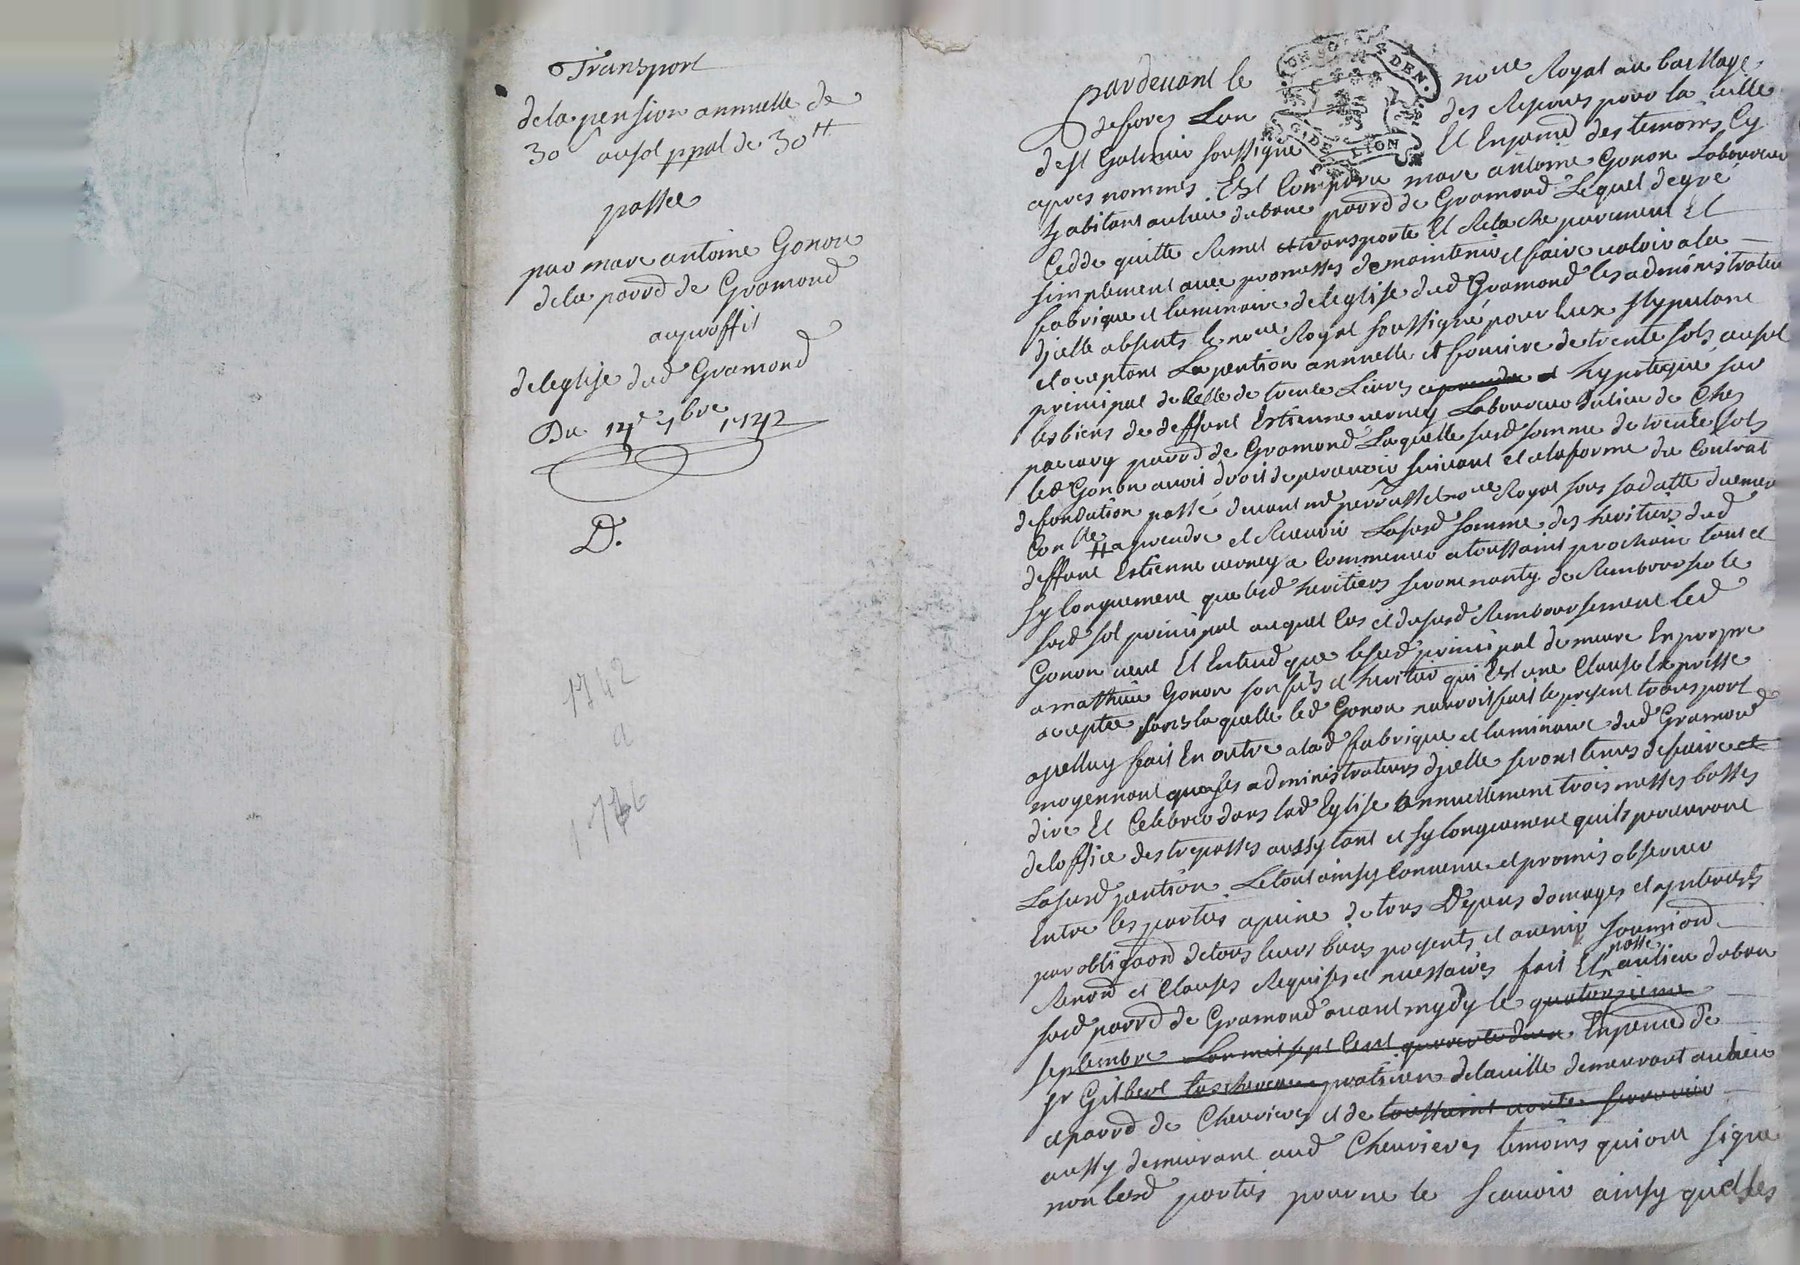 Transport
de la pension annuelle de
30ˢ au sol ppal de 30ᵗᵗ
passee
par marc antoine Gonon
de la parrd de Gramond
au proffit
de leglise dud Gramond
Du 14ᵉ 7bre 1742
D.
1742
a
pardevant le noʳᵉ Royal au baillage
de forez
des Rejeunes pour la ville
de st Galmier soussigné Et En pnce des temoins Cy
apres nommés Est Comparu marc antoine Gonon Laboureur
habitant au lieu du bouc parrd de Gramond Lequel de gré
Cedde quitte Remet et transporte Et Relache purement Et
simplement avec promesses de maintenir et faire valoir a la
fabrique et luminaire de leglise dud Gramond les administrateurs
djcelle absents le noʳᵉ Royal soussigné pour Eux stypulant
et aceptant La pention annuelle et fonciere de trente sols au sol
principal de Celle de trente Livres a prendre et hypotequé sur
les biens de deffunt Estienne verney Laboureur du lieu de Ches
parrd de Gramond Laquelle susd somme de trente sols
led Gonon avoit droit de percevoir suivant et a la forme du Contrat
de fondation passé devant noʳᵉ Royal sous sa datte duement
Conllé a prendre et Recevoir La susd somme des heritiers dud
deffunt Estienne verney a Commencer a toussaint prochain tant et
sy longuement que lesd heritiers seront nanty de Rembourser le
susd sol principal auquel Cas et du susd Remboursement led
Gonon veut Et Entend que le susd principal demeure En propre
a mathieu Gonon son fils et heritier qui Est une Clause Expresse
aceptée sans laquelle led Gonon nauroit fait le present transport
fait En outre a lad fabrique et luminaire dud Gramond
moyennant que les administrateurs djcelle seront tenus de faire et
dire Et Celebrer dans lad Eglise annuellement trois messes basses
de loffice des trepasses aussy tant et sy longuement quils percevront
La susd pention Le tout ainsy Convenu et promis observer
Entre les parties a peine de tous Dépens domages et jnterests
par obligaon de tous leurs biens presents et avenir soumiond
Renond et Clauses Requises et necessaires fait Et passé au lieu du bouc
susd parrd de Gramond avant mydy le quatorzieme
septembre Lan mil sept Cent quarante deux En pnce de
sr Gilbert praticien de la ville demeurant au lieu
et parrd de Chevrieres et de toussaint
aussy demeurant aud Chevrieres temoins qui ont signé
non lesd parties pour ne le scavoir ainsy quelles